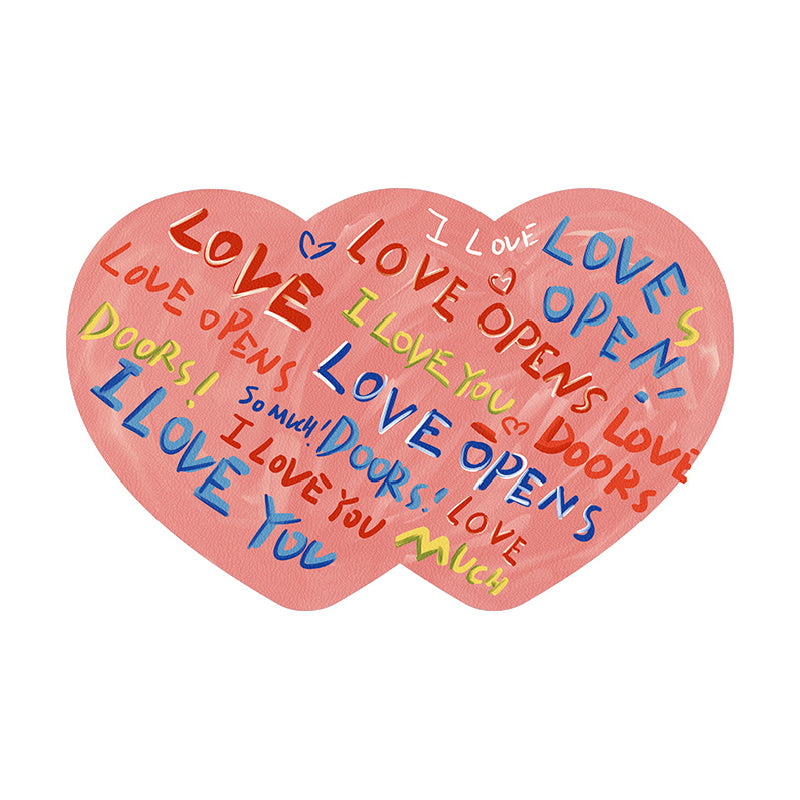 LOVE
I LOVE
LOVES
OPEN!
LOVE OPENS
LOVE OPENS
DOORS!
I LOVE YOU
LOVE
DOORS
LOVE OPENS
DOORS!
SO MUCH!
I LOVE YOU
I LOVE YOU
LOVE
MUCH